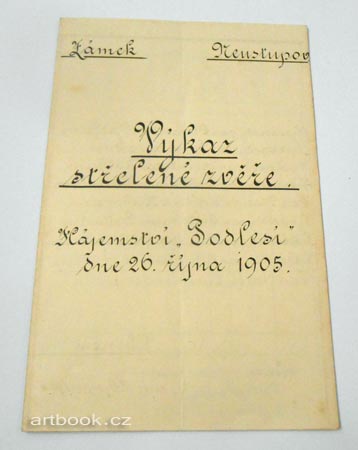 Zámek Neustupov
Výkaz
střelené zvěře.
Hájemství „Podlesí"
dne 26. října 1905.
artbook.cz